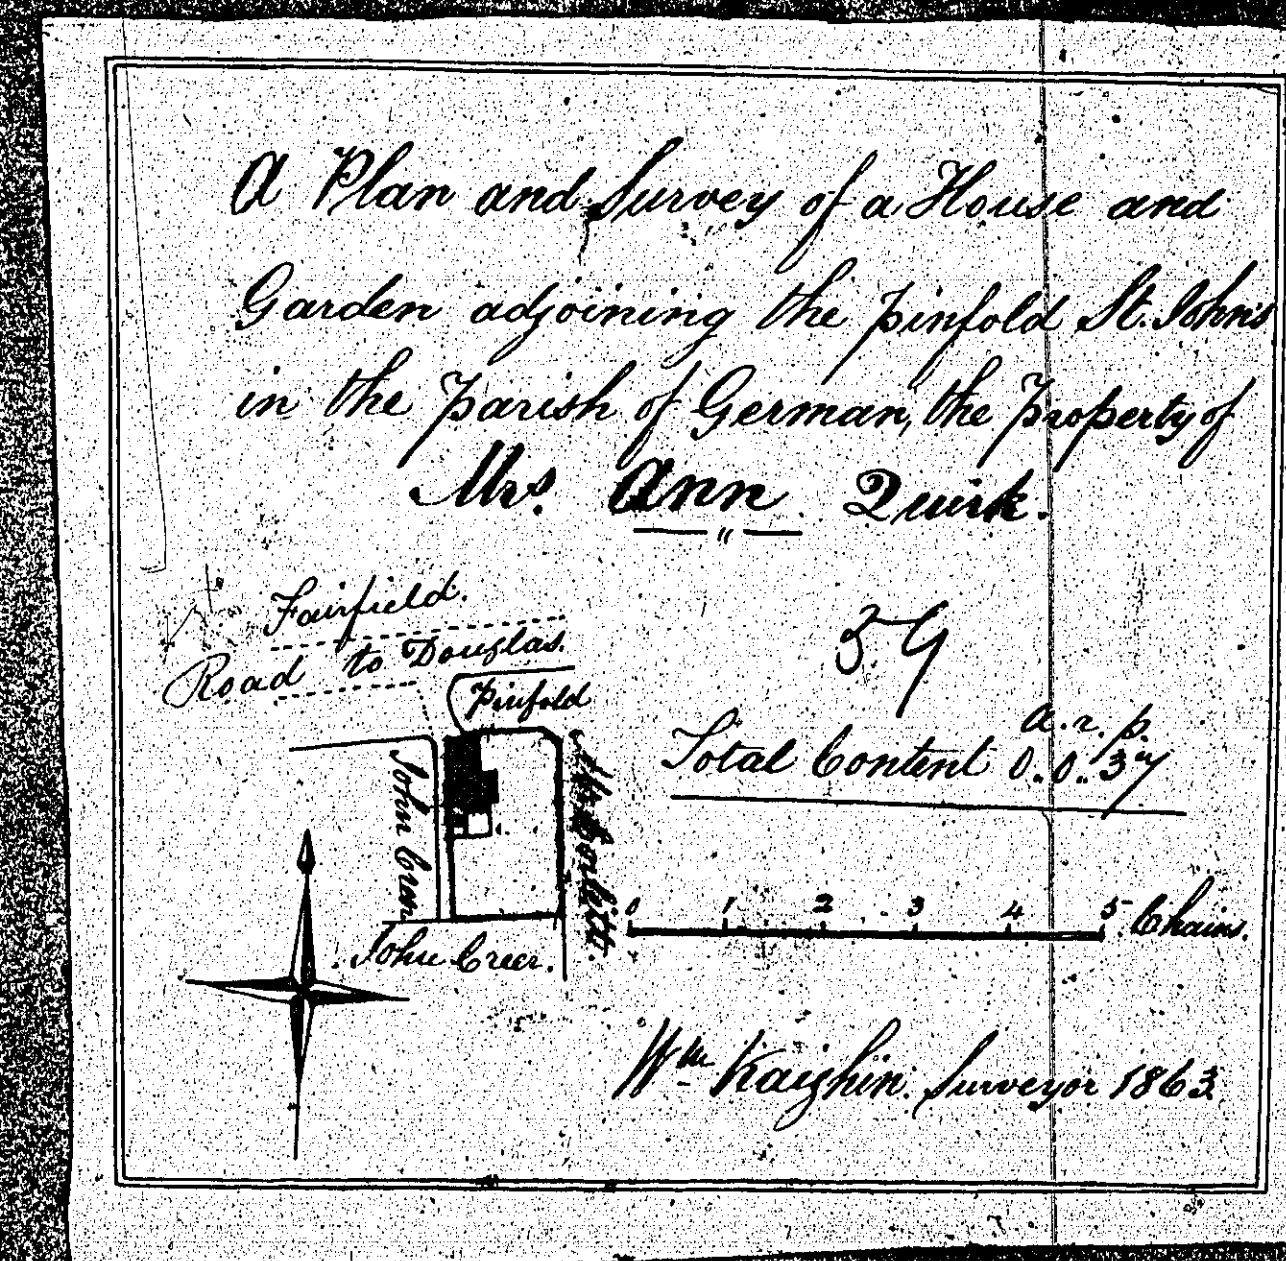 A Plan and Survey of a House and
Garden adjoining the pinfold St. John's
in the parish of German, the property of
Mrs. Ann Quirk.
Fairfield.
Road to Douglas.
Pinfold
John
John Creer.
Total Content
a. r. p.
0. 0. 37
0 1 2 3 4 5 Chains.
Wm Kaighin. Surveyor 1863